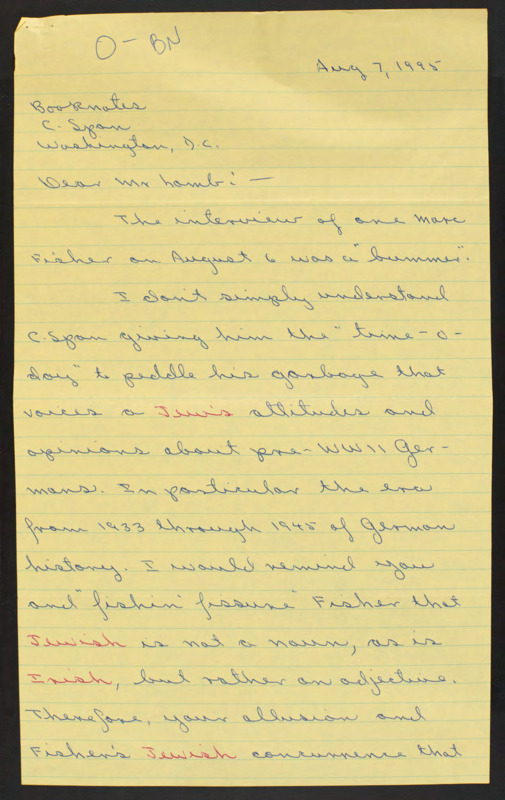 O - BN
Aug 7, 1995
Booknotes
C. Span
Washington, D.C.
Dear Mr Lamb: —
The interview of one Marc
Fisher on August 6 was a "bummer".
I don't simply understand
C-Span giving him the "time-o-
day" to peddle his garbage that
voices a Jew's attitudes and
opinions about pre-WW11 Ger-
mans. In particular the era
from 1933 through 1945 of German
history. I would remind you
and "fishin' fissure" Fisher that
Jewish is not a noun, as is
Irish, but rather an adjective.
Therefore, your allusion and
Fisher's Jewish concurrence that